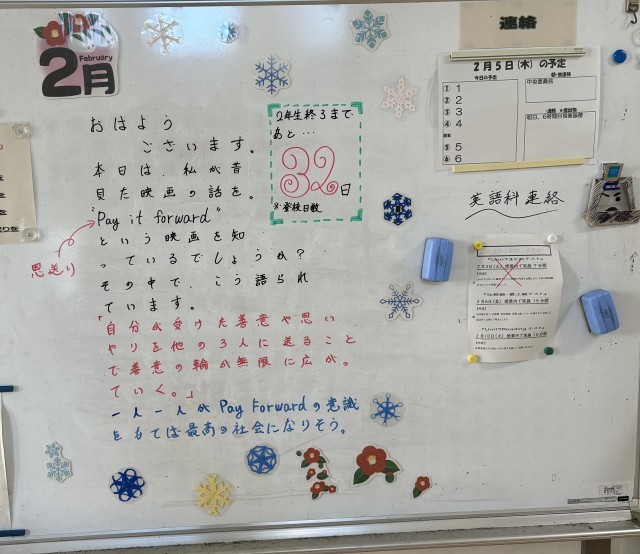 2月
February
おはよう
ございます。
本日は、私が昔
見た映画の話を。
"Pay it forward"
という映画を知
っているでしょうか?
その中で、こう語られ
ています。
「自分が受けた善意や思い
やりを他の3人に送ること
で善意の輪が無限に広が
ていく。」
一人一人がPay Forwardの意識
をもては最高の社会になりそう。
恩送り
2年生終3まで
あと…
32日
※登校日数
連絡
2月5日(木)の予定
今日の予定
① 1
② 2
③ 3
④ 4
⑤ 5
⑥ 6
中央委員会
英語科連絡